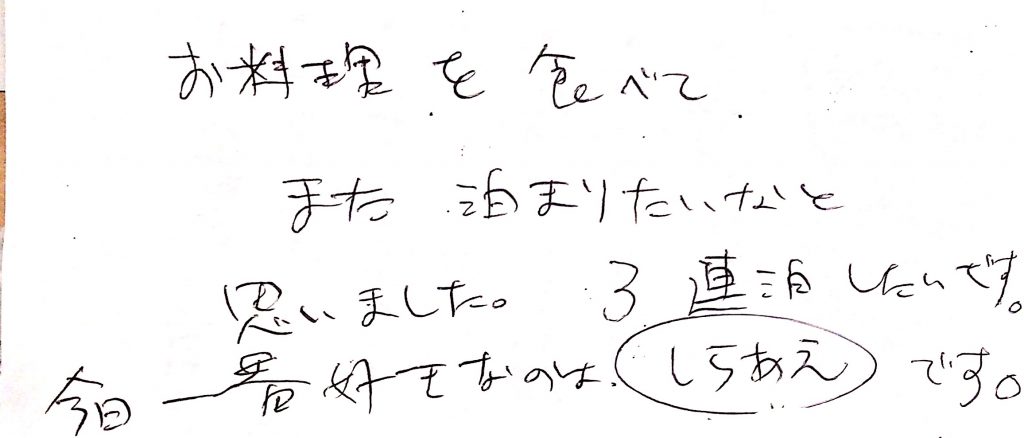 お料理を食べて
また泊まりたいなと
思いました。3連泊したいです。
今日一番好きなのは、しらあえです。